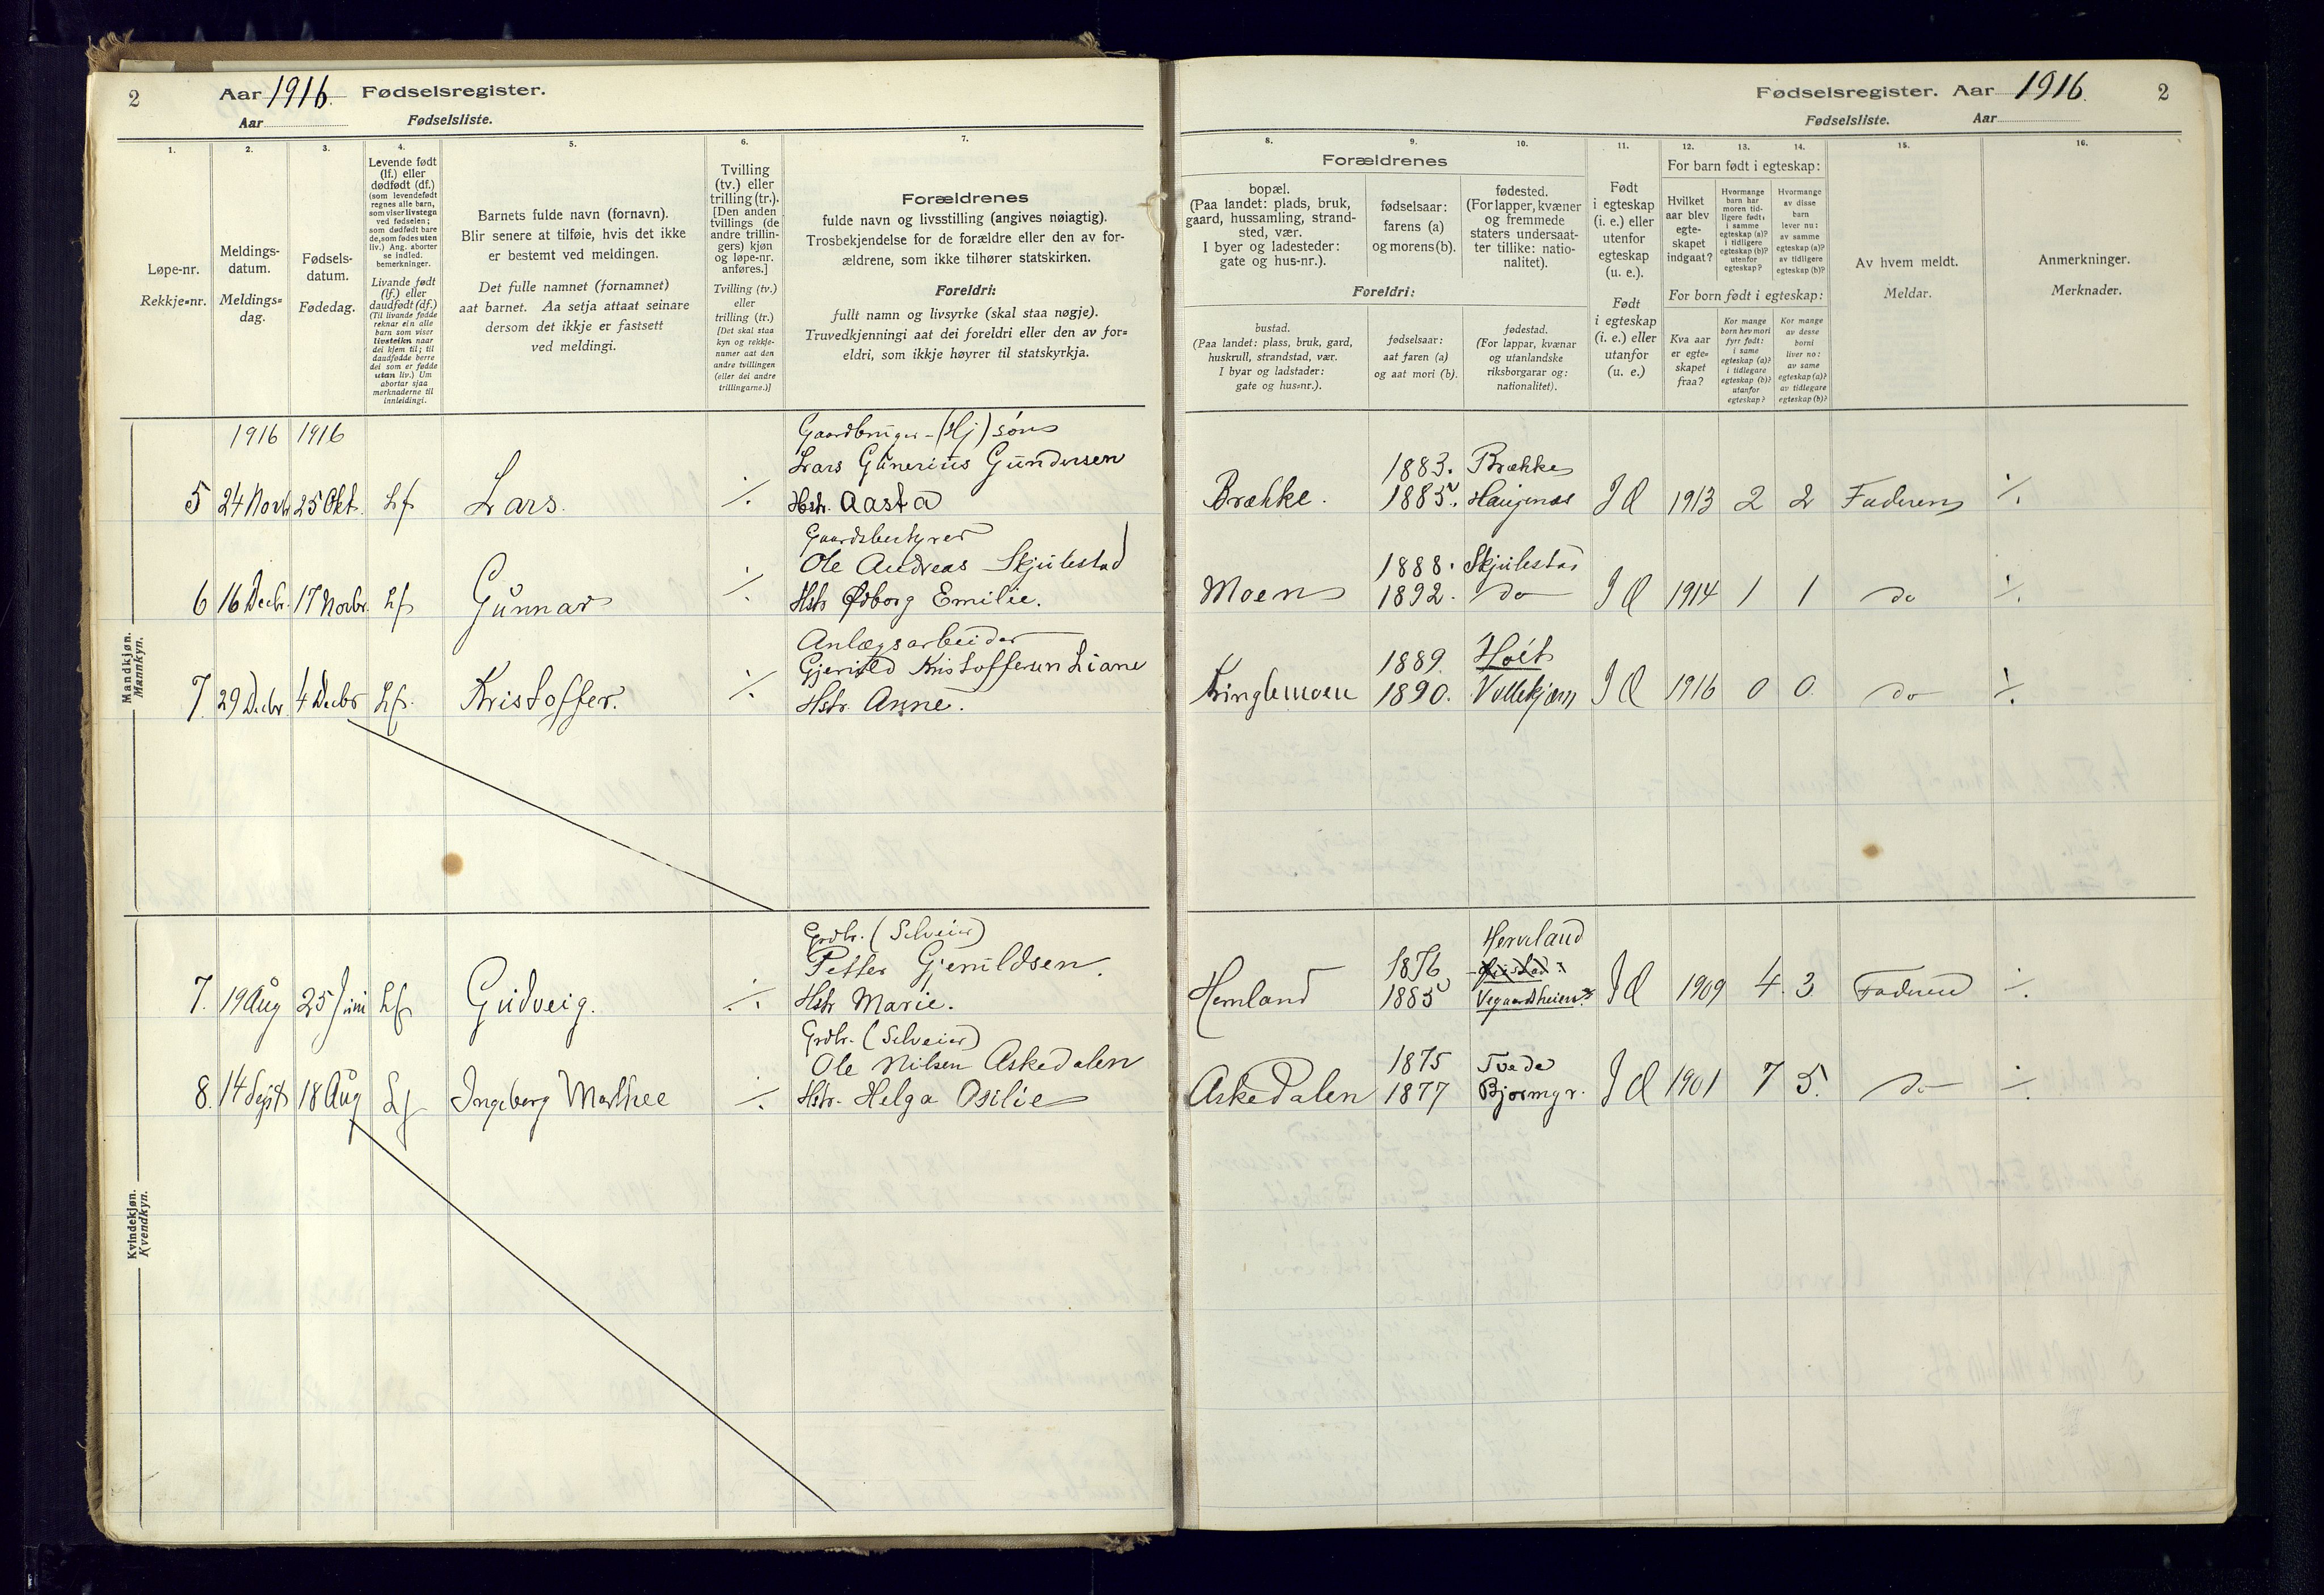 2
Aar 1916. Fødselsregister.
Aar Fødselsliste.
1.
Løpe-nr.
Rekkje=nr.
2.
Meldings-
datum.
Meldings=
dag.
3.
Fødsels-
datum.
Fødedag.
4.
Levende født
(lf.) eller
dødfødt (df.)
(som levendefødt
regnes alle barn,
som viser livstegn
ved fødselen;
som dødfødt bare
de, som fødes uten
liv.) Ang. aborter
se indled.
bemerkninger.
Livande født
(lf.) eller
daudfødt (df.)
(Til livande fødde
reknar ein alle
barn som viser
livsteikn naar
dei kjem til; til
daudfødde berre
dei som er fødde
utan liv.) Um
abortar sjaa
merknaderne til
innleidingi.
5.
Barnets fulde navn (fornavn).
Blir senere at tilføie, hvis det ikke
er bestemt ved meldingen.
Det fulle namnet (fornamnet)
aat barnet. Aa setja attaat seinare
dersom det ikkje er fastsett
ved meldingi.
6.
Tvilling
(tv.) eller
trilling (tr.).
[Den anden
tvillings (de
andre trillin-
gers) kjøn
og løpe-nr.
anføres.]
Tvilling (tv.)
eller
trilling (tr.)
[Det skal staa
kyn og rekkje-
numer aat den
andre tvillingen
(eller dei andre
trillingarne.)]
7.
Forældrenes
fulde navn og livsstilling (angives nøiagtig).
Trosbekjendelse for de forældre eller den av for-
ældrene, som ikke tilhører statskirken.
Foreldri:
fullt namn og livsyrke (skal staa nøgje).
Truvedkjenningi aat dei foreldri eller den av for=
eldri, som ikkje høyrer til statskyrkja.
Mandkjøn.
Mannkyn.
1916 1916
Gaardbruger-(Hj) søn
Lars Gunerius Gundersen
5 24 Novb 25 Okt. Lf Lars. ./. Hstr. Aasta
Gaardsbestyrer
Ole Andreas Skjulestad
6 16 Decbr. 17 Novbr. Lf Gunnar ./. Hstr Ødborg Emilie.
Anlægsarbeider
Gjeruld Kristoffersen Liane
7. 29 Decbr. 4 Decbr Lf. Kristoffer. ./. Hstr. Anne.
Kvindekjøn.
Kvendkyn.
Grdbr. (Selveier)
Petter Gjeruldsen.
7. 19 Aug 25 Juni Lf Gudveig. ./. Hstr Marie.
Grdbr. (Selveier)
Ole Nilsen Askedalen
8. 14 Septb 18 Aug Lf Ingeborg Mathee ./. Hstr. Helga Osilie
Fødselsregister. Aar 1916. 2
Fødselsliste. Aar
8.
Forældrenes
bopæl.
(Paa landet: plads, bruk,
gaard, hussamling, strand-
sted, vær.
I byer og ladesteder:
gate og hus-nr.).
Foreldri:
bustad.
(Paa landet: plass, bruk, gard,
huskrull, strandstad, vær.
I byar og ladstader:
gate og hus=nr.).
9.
fødselsaar:
farens (a)
og morens (b).
fødselsaar:
aat faren (a)
og aat mori (b).
10.
fødested.
(For lapper, kvæner
og fremmede
staters undersaat-
ter tillike: natio-
nalitet).
fødestad.
(For lappar, kvænar
og utanlandske
riksborgarar og:
nationalitet).
11.
Født
i egteskap
(i. e.) eller
utenfor
egteskap
(u. e.).
Født
i egteskap
(i. e.) eller
utanfor
(u. e.)
12. 13. 14.
For barn født i egteskap:
Hvilket
aar blev
egte-
skapet
indgaat?
Hvormange
barn har
moren tid-
ligere født:
i samme
egteskap (a)?
i tidligere
egteskap (b)?
utenfor
egteskap?
Hvormange
av disse
barn
lever nu:
av samme
egteskap (a)?
av tidligere
egteskap (b)?
For born født i egteskap:
Kva aar
er egte=
skapet
fraa?
Kor mange
born hev mori
fyrr født:
i same
egteskap (a)?
i tidlegare
egteskap (b)?
utanfor
egteskap?
Kor mange
av desse
borni
liver no:
av same
egteskap (a)?
av tidlegare
egteskap (b)?
15.
Av hvem meldt.
Meldar.
16.
Anmerkninger.
Merknader.
1883. Brække
Brække. 1885. Haugenes I E 1913 2 2 Faderen ./.
1888. Skjulestad
Moen 1892. do I E 1914 1 1 do ./.
1889. Holt
Kringlemoen 1890. Vollekjær I E 1916 0 0 do ./.
Herreland
1876
Hemland 1885 Vegaardsheien I E 1909 4. 3. Faderen ./.
1875 Tvede
Askedalen 1877 Bjormyr. I E 1901 7 5. do ./.